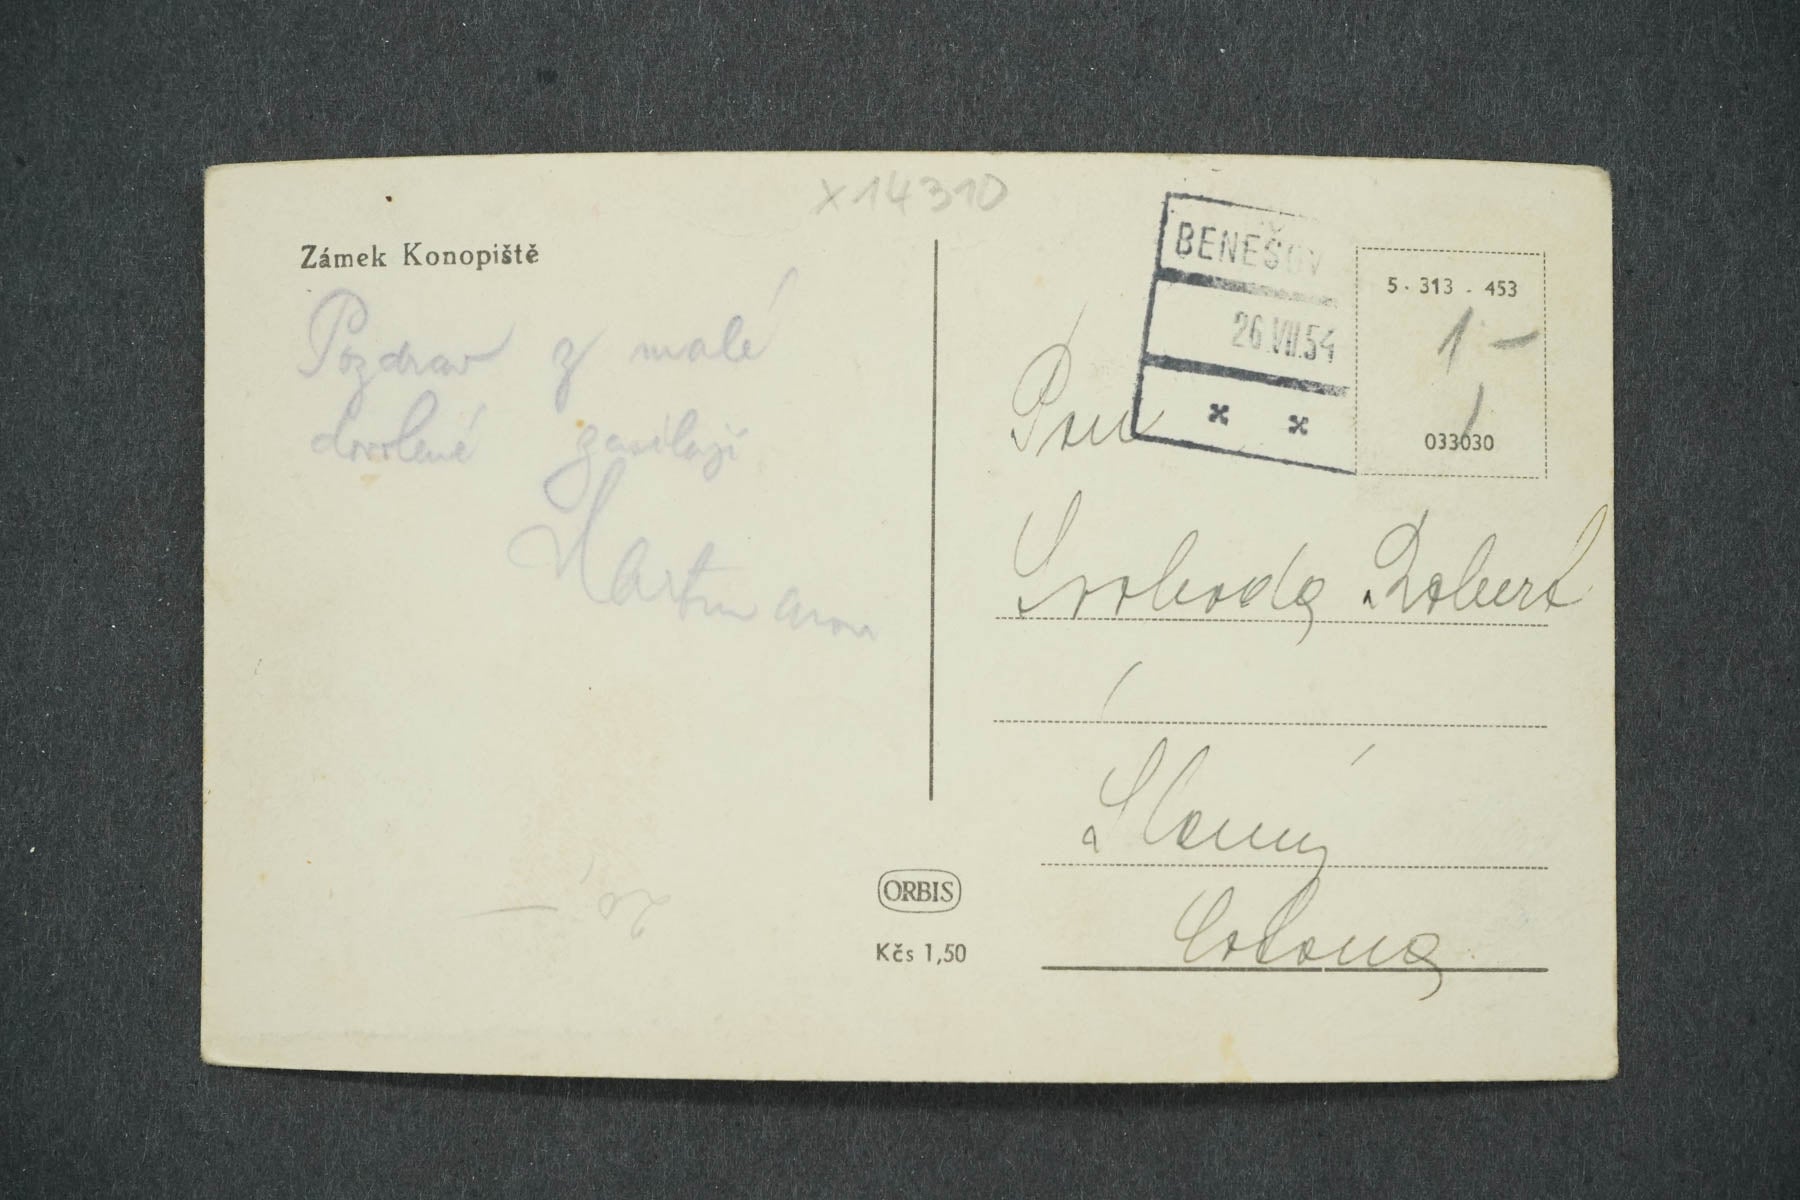 x14310
Zámek Konopiště
Pozdrav z malé
dovolené zasílají
BENEŠOV
26.VII.54
5 · 313 - 453
1 -
033030
Pan
Svoboda Robert
Slaný
ORBIS
Kčs 1,50
20,-